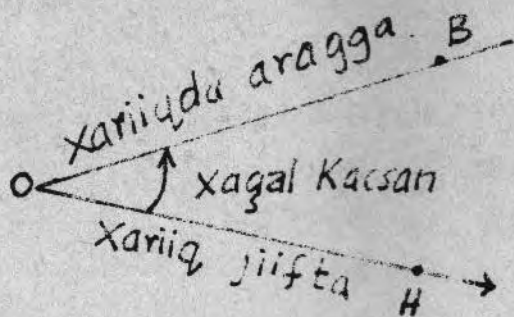 xariiqda aragga.
B
O
xagal Kacsan
xariiq jiifta
H